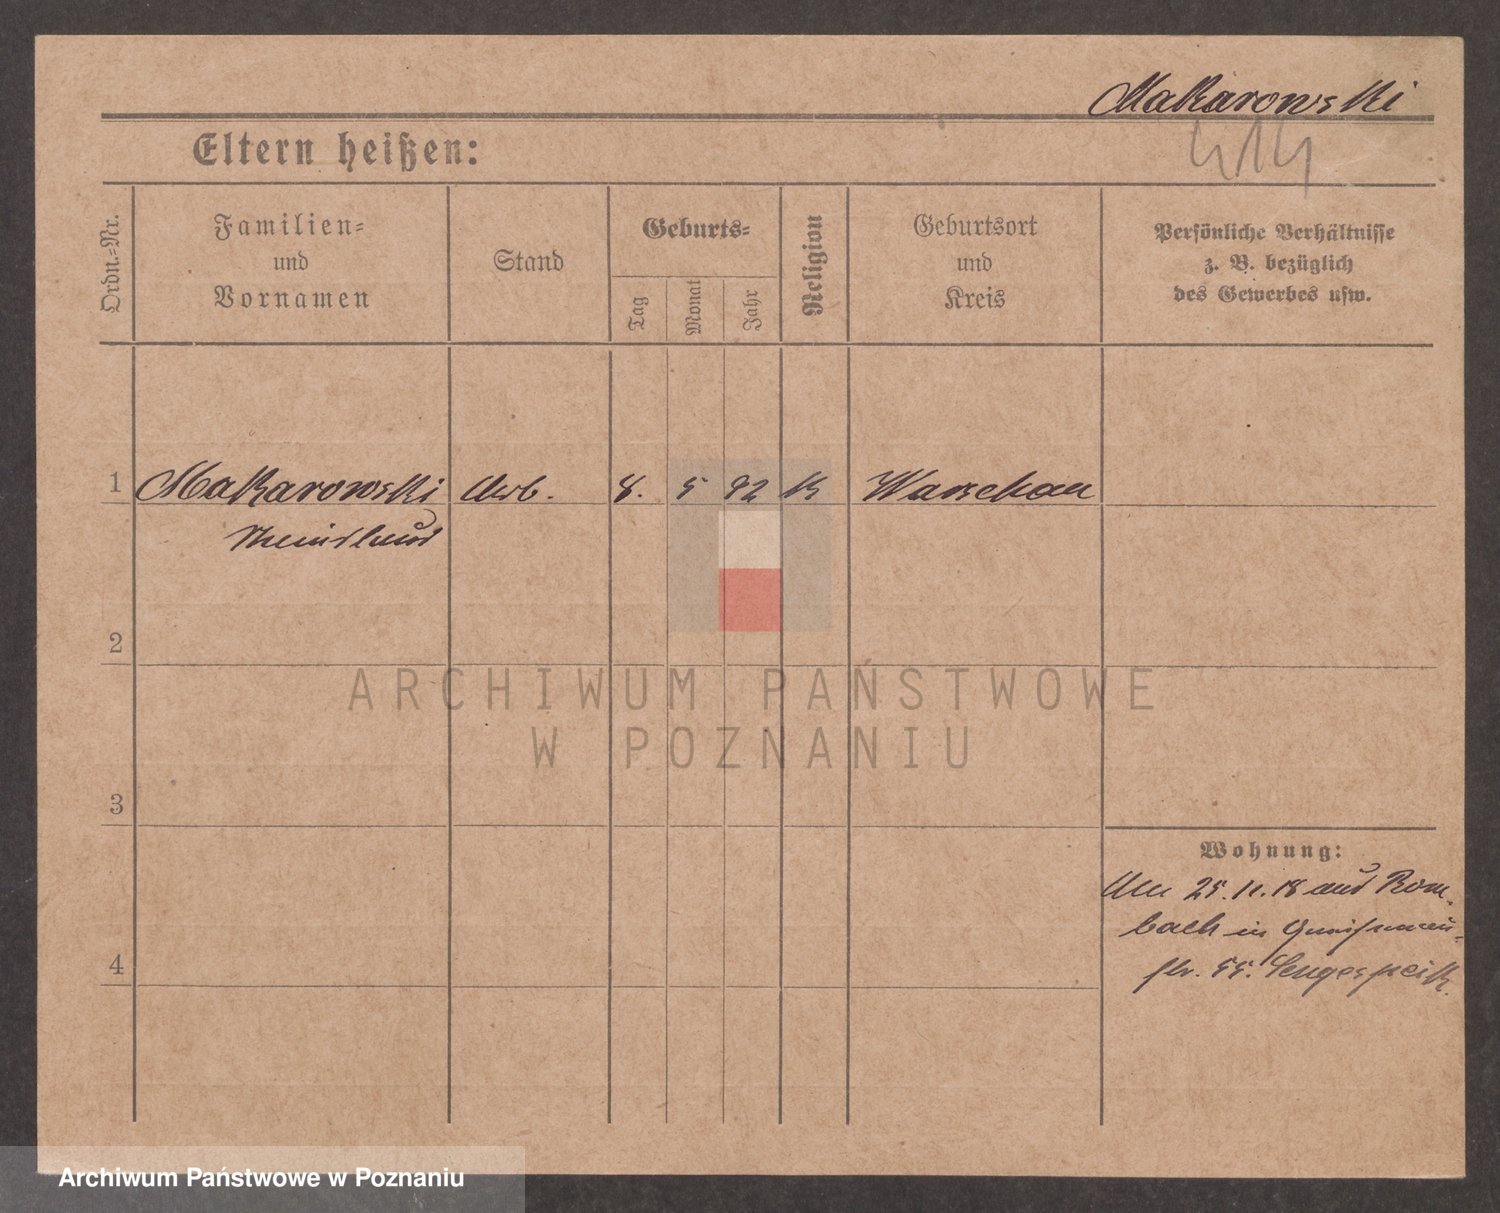 Makarowski
414
Eltern heißen:
Ordn.-Nr.
Familien-
und
Vornamen
Stand
Geburts-
Tag
Monat
Jahr
Religion
Geburtsort
und
Kreis
Persönliche Verhältnisse
z. B. bezüglich
des Gewerbes usw.
1
Makarowski
Arb.
8.
5
92
K
Warschau
2
ARCHIWUM PAŃSTWOWE
W POZNANIU
3
Wohnung:
Am 25.11.18 aus Rom-
bach in
str. 55.
4
Archiwum Państwowe w Poznaniu